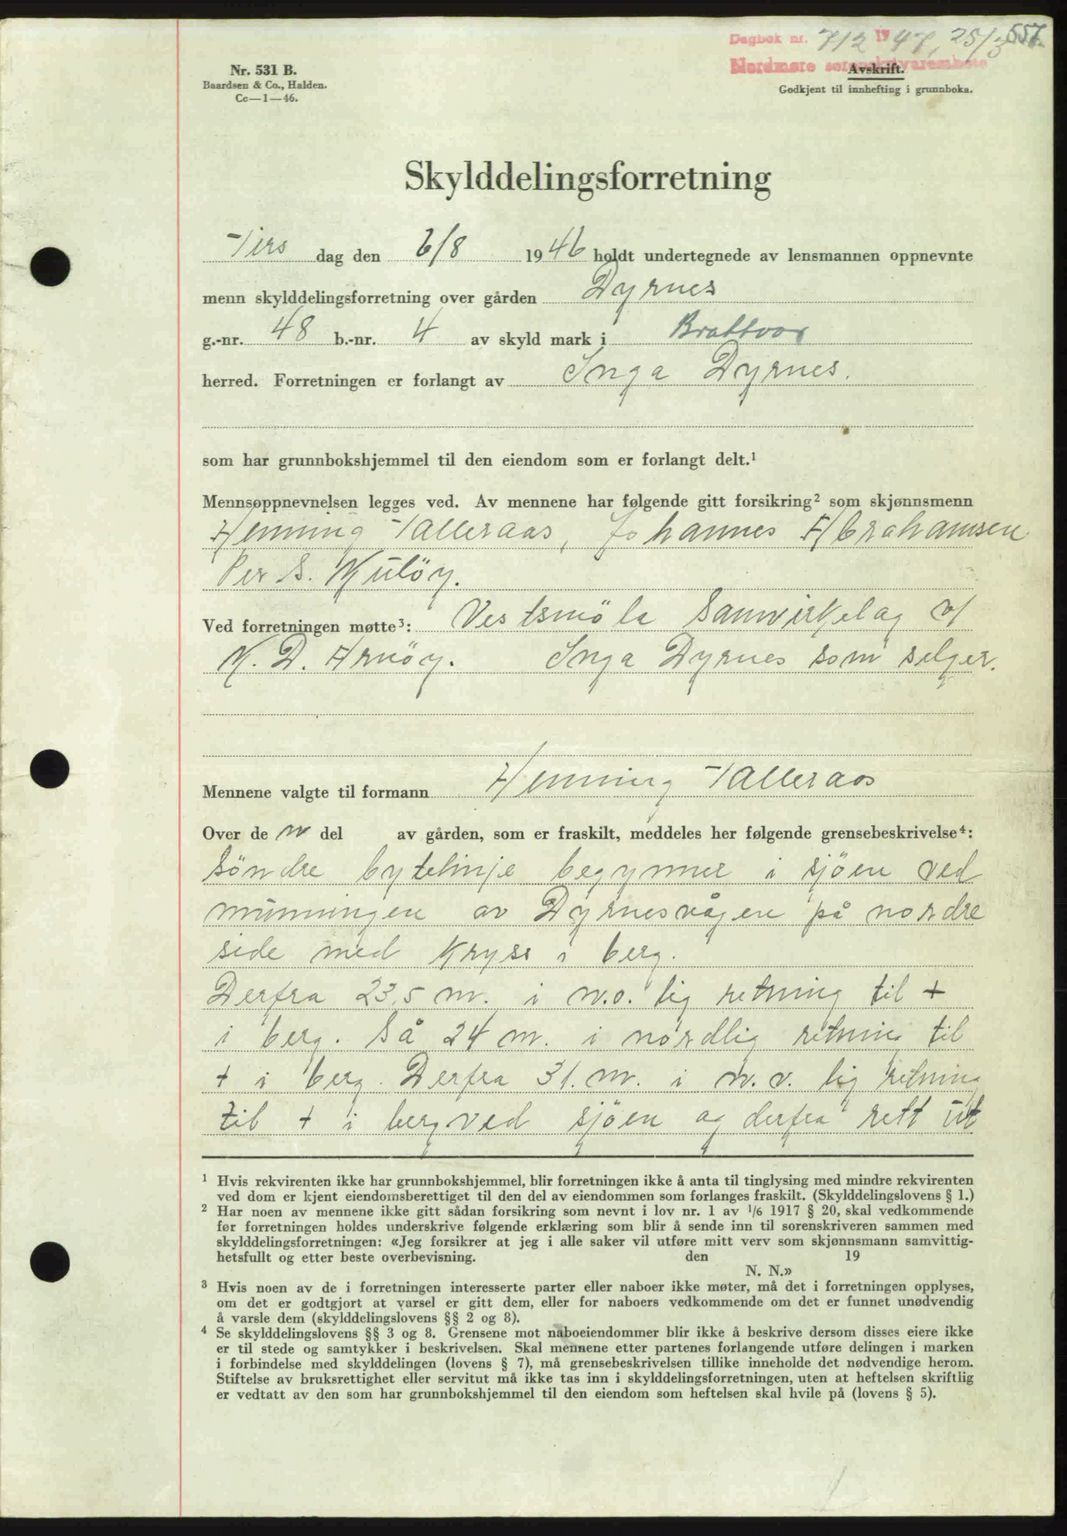 Dagbok nr. 712 1947, 25/3 557.
Nordmøre sorenskriverembete
Nr. 531 B.
Baardsen & Co., Halden.
Cc—1—46.
Avskrift.
Godkjent til innhefting i grunnboka.
Skylddelingsforretning
Tirs dag den 6/8 1946 holdt undertegnede av lensmannen oppnevnte
menn skylddelingsforretning over gården Dyrnes
g.-nr. 48 b.-nr. 4 av skyld mark i Brattvær
herred. Forretningen er forlangt av Inga Dyrnes.
som har grunnbokshjemmel til den eiendom som er forlangt delt.¹
Mennsoppnevnelsen legges ved. Av mennene har følgende gitt forsikring² som skjønnsmenn
Henning Talleraas, Johannes Abrahamsen
Per S. Kulöy.
Ved forretningen møtte³: Vestsmöla Samvirkelag v/
K. D. Arnöy. Inga Dyrnes som selger.
Mennene valgte til formann Henning Talleraas
Over de n del av gården, som er fraskilt, meddeles her følgende grensebeskrivelse⁴:
Söndre bytelinje begynner i sjöen ved
munningen av Dyrnesvågen på nordre
side med kryss i berg.
Derfra 23,5 m. i n.o. lig retning til +
i berg. Så 24 m. i nordlig retning til
+ i berg. Derfra 31. m. i n.v. lig retning
til + i berg ved sjöen og derfra rett ut
¹ Hvis rekvirenten ikke har grunnbokshjemmel, blir forretningen ikke å anta til tinglysing med mindre rekvirenten
ved dom er kjent eiendomsberettiget til den del av eiendommen som forlanges fraskilt. (Skylddelingslovens § 1.)
² Har noen av mennene ikke gitt sådan forsikring som nevnt i lov nr. 1 av 1/6 1917 § 20, skal vedkommende
før forretningen holdes underskrive følgende erklæring som blir å sende inn til sorenskriveren sammen med
skylddelingsforretningen: «Jeg forsikrer at jeg i alle saker vil utføre mitt verv som skjønnsmann samvittig-
hetsfullt og etter beste overbevisning. den 19
N. N.»
³ Hvis noen av de i forretningen interesserte parter eller naboer ikke møter, må det i forretningen opplyses,
om det er godtgjort at varsel er gitt dem, eller for naboers vedkommende om det er funnet unødvendig
å varsle dem (skylddelingslovens §§ 2 og 8).
⁴ Se skylddelingslovens §§ 3 og 8. Grensene mot naboeiendommer blir ikke å beskrive dersom disses eiere ikke
er til stede og samtykker i beskrivelsen. Skal mennene etter partenes forlangende utføre delingen i marken
i forbindelse med skylddelingen (lovens § 7), må grensebeskrivelsen tillike inneholde det nødvendige herom.
Stiftelse av bruksrettighet eller servitut må ikke tas inn i skylddelingsforretningen, uten at heftelsen skriftlig
er vedtatt av den som har grunnbokshjemmel til den eiendom som heftelsen skal hvile på (lovens § 5).